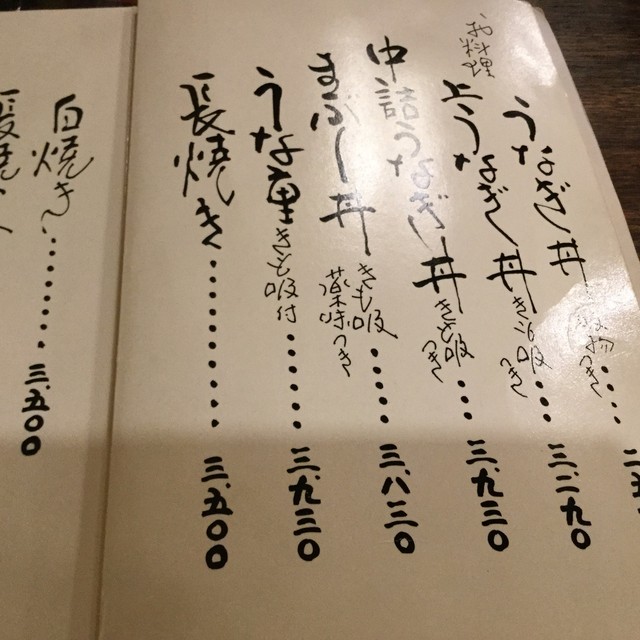 お料理
うなぎ丼 吸物つき
上うなぎ丼 きも吸つき 三、二九〇
中詰うなぎ丼 きも吸つき 三、九三〇
まぶし丼 きも吸 薬味つき 三、八三〇
うな重 きも吸付 三、九三〇
長焼き 三、五〇〇
白焼き 三、五〇〇
長焼